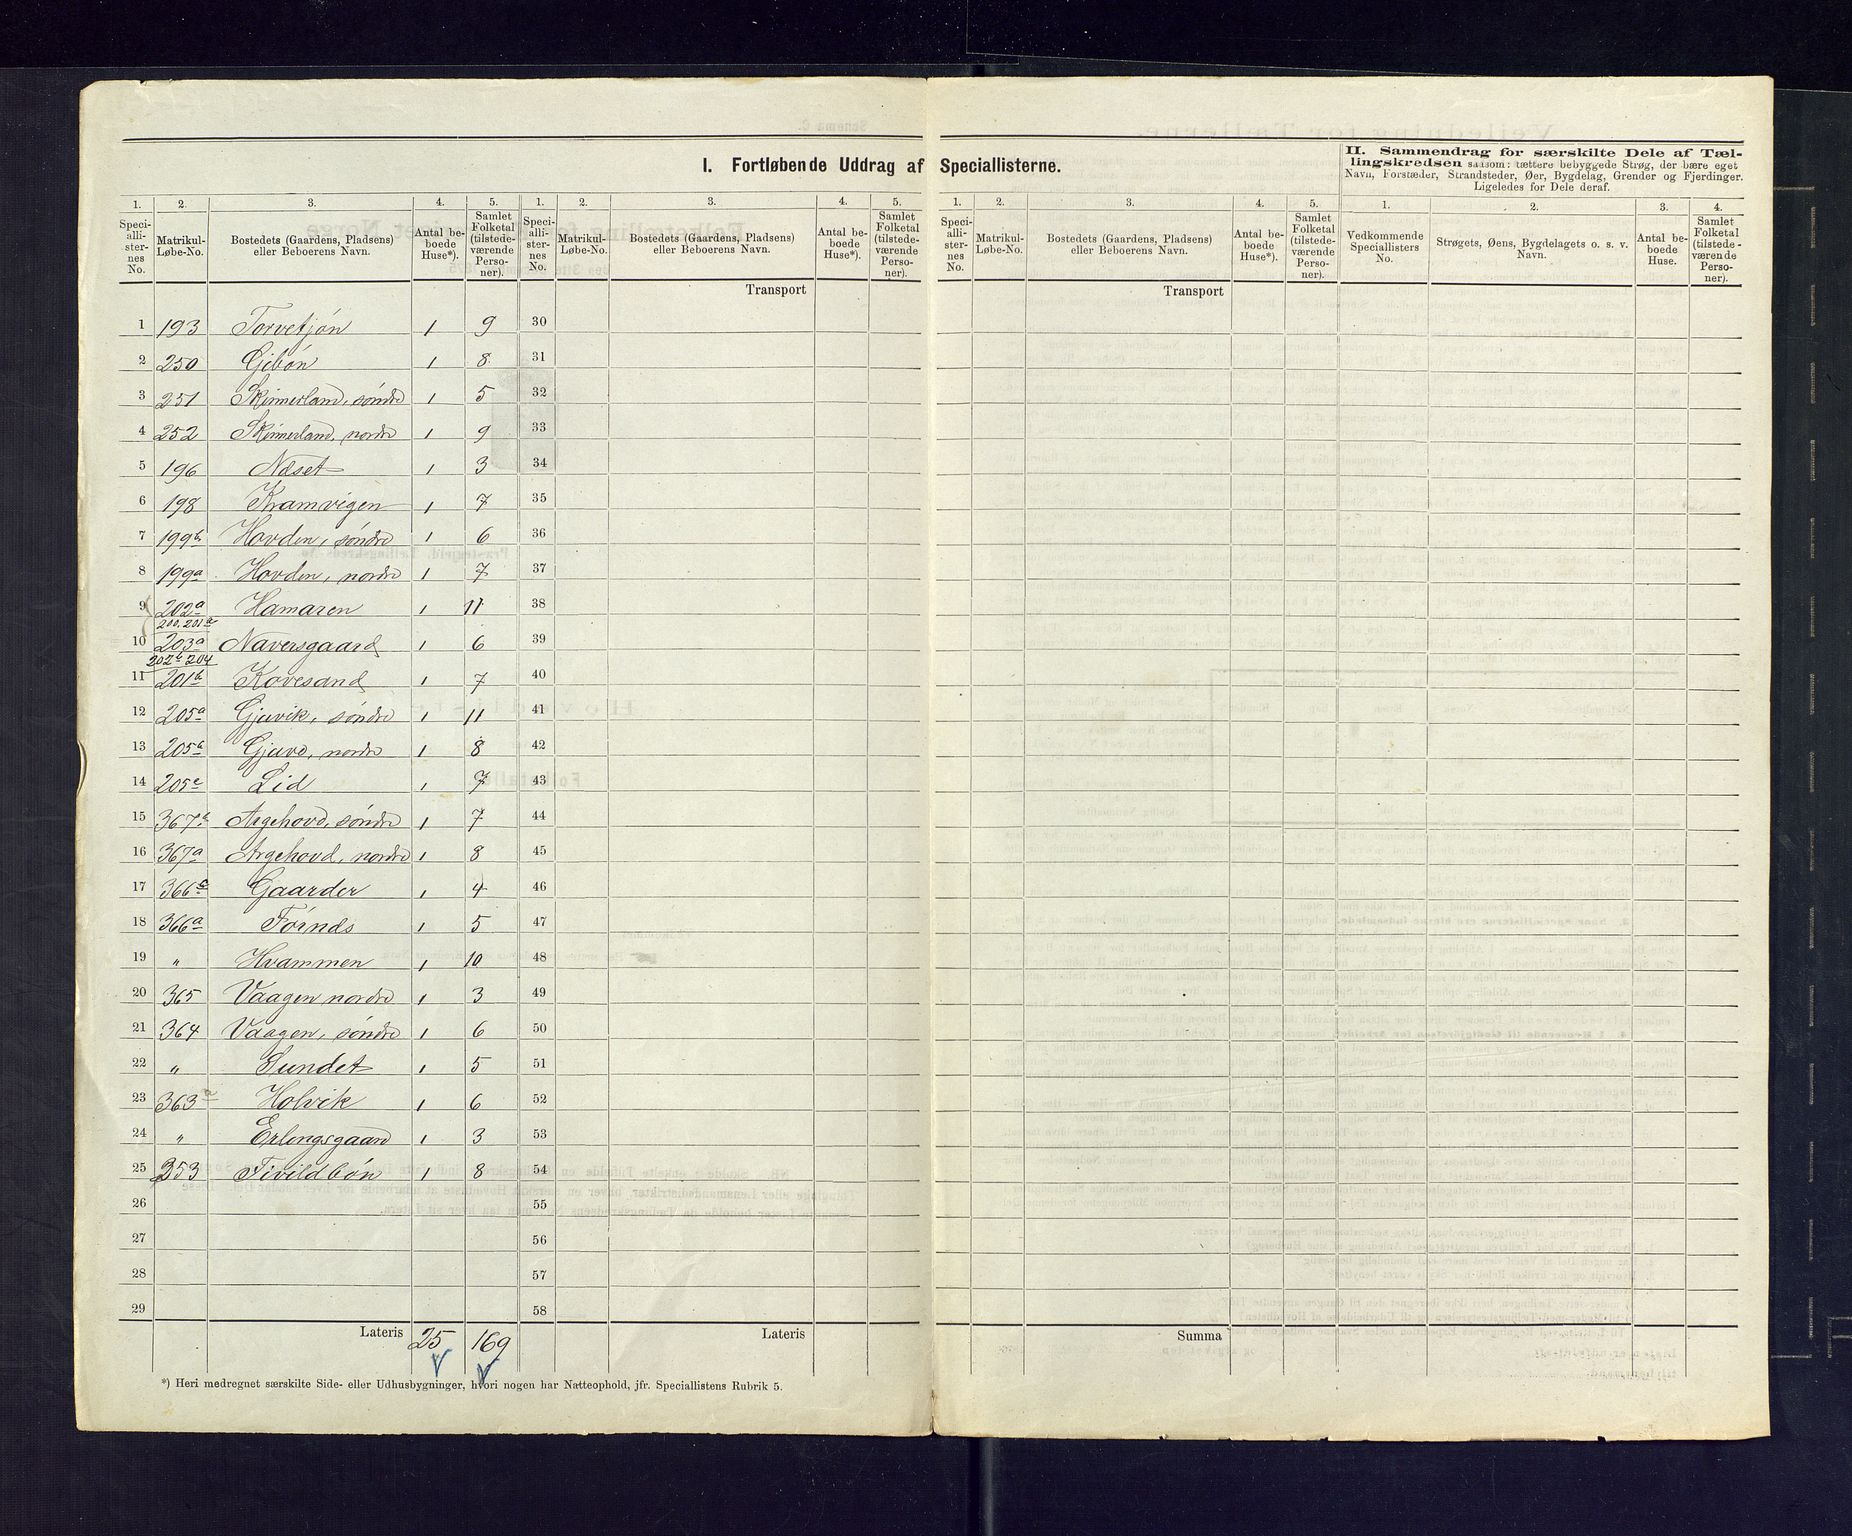 I. Fortløbende Uddrag af Speciallisterne.
II. Sammendrag for særskilte Dele af Tæl-
lingskredsen saasom: tættere bebyggede Strøg, der bære eget
Navn, Forstæder, Strandsteder, Øer, Bygdelag, Grender og Fjerdinger.
Ligeledes for Dele deraf.
1. 2. 3. 4. 5. 1. 2. 3. 4. 5. 1. 2. 3. 4. 5. 1. 2. 3. 4.
Speci-allister-nes No. Matrikul-Løbe-No. Bostedets (Gaardens, Pladsens) eller Beboerens Navn. Antal beboede Huse*). Samlet Folketal (tilstedeværende Personer).
Speci-allister-nes No. Matrikul-Løbe-No. Bostedets (Gaardens, Pladsens) eller Beboerens Navn. Antal beboede Huse*). Samlet Folketal (tilstedeværende Personer).
Speci-allister-nes No. Matrikul-Løbe-No. Bostedets (Gaardens, Pladsens) eller Beboerens Navn. Antal beboede Huse*). Samlet Folketal (tilstedeværende Personer).
Vedkommende Speciallisters No. Strøgets, Øens, Bygdelagets o. s. v. Navn. Antal beboede Huse. Samlet Folketal (tilstedeværende Personer).
Transport Transport
1 193 Torvetjøn 1 9 30
2 250 Gibøn 1 8 31
3 251 Skinnerland, søndre 1 5 32
4 252 Skinnerland, nordre 1 9 33
5 196 Næset 1 3 34
6 198 Kramvigen 1 7 35
7 199b Hovden, søndre 1 6 36
8 199a Hovden, nordre 1 7 37
9 202a Hamaren 1 11 38
200. 201a
10 203a Naversgaard 1 6 39
202b 204
11 201b Kovesand 1 7 40
12 205a Gjuvik, søndre 1 11 41
13 205b Gjuve, nordre 1 8 42
14 205c Lid 1 7 43
15 367b Argehovd, søndre 1 7 44
16 367a Argehovd, nordre 1 8 45
17 366c Gaarder 1 4 46
18 366a Førnes 1 5 47
19 " Hvammen 1 10 48
20 365 Vaagen nordre 1 3 49
21 364 Vaagen, søndre 1 6 50
22 " Sundet 1 5 51
23 363a Holvik 1 6 52
24 " Erlingsgaard 1 3 53
25 353 Tivildbøn 1 8 54
26 55
27 56
28 57
29 58
Lateris 25 169 Lateris Summa
*) Heri medregnet særskilte Side- eller Udhusbygninger, hvori nogen har Natteophold, jfr. Speciallistens Rubrik 5.